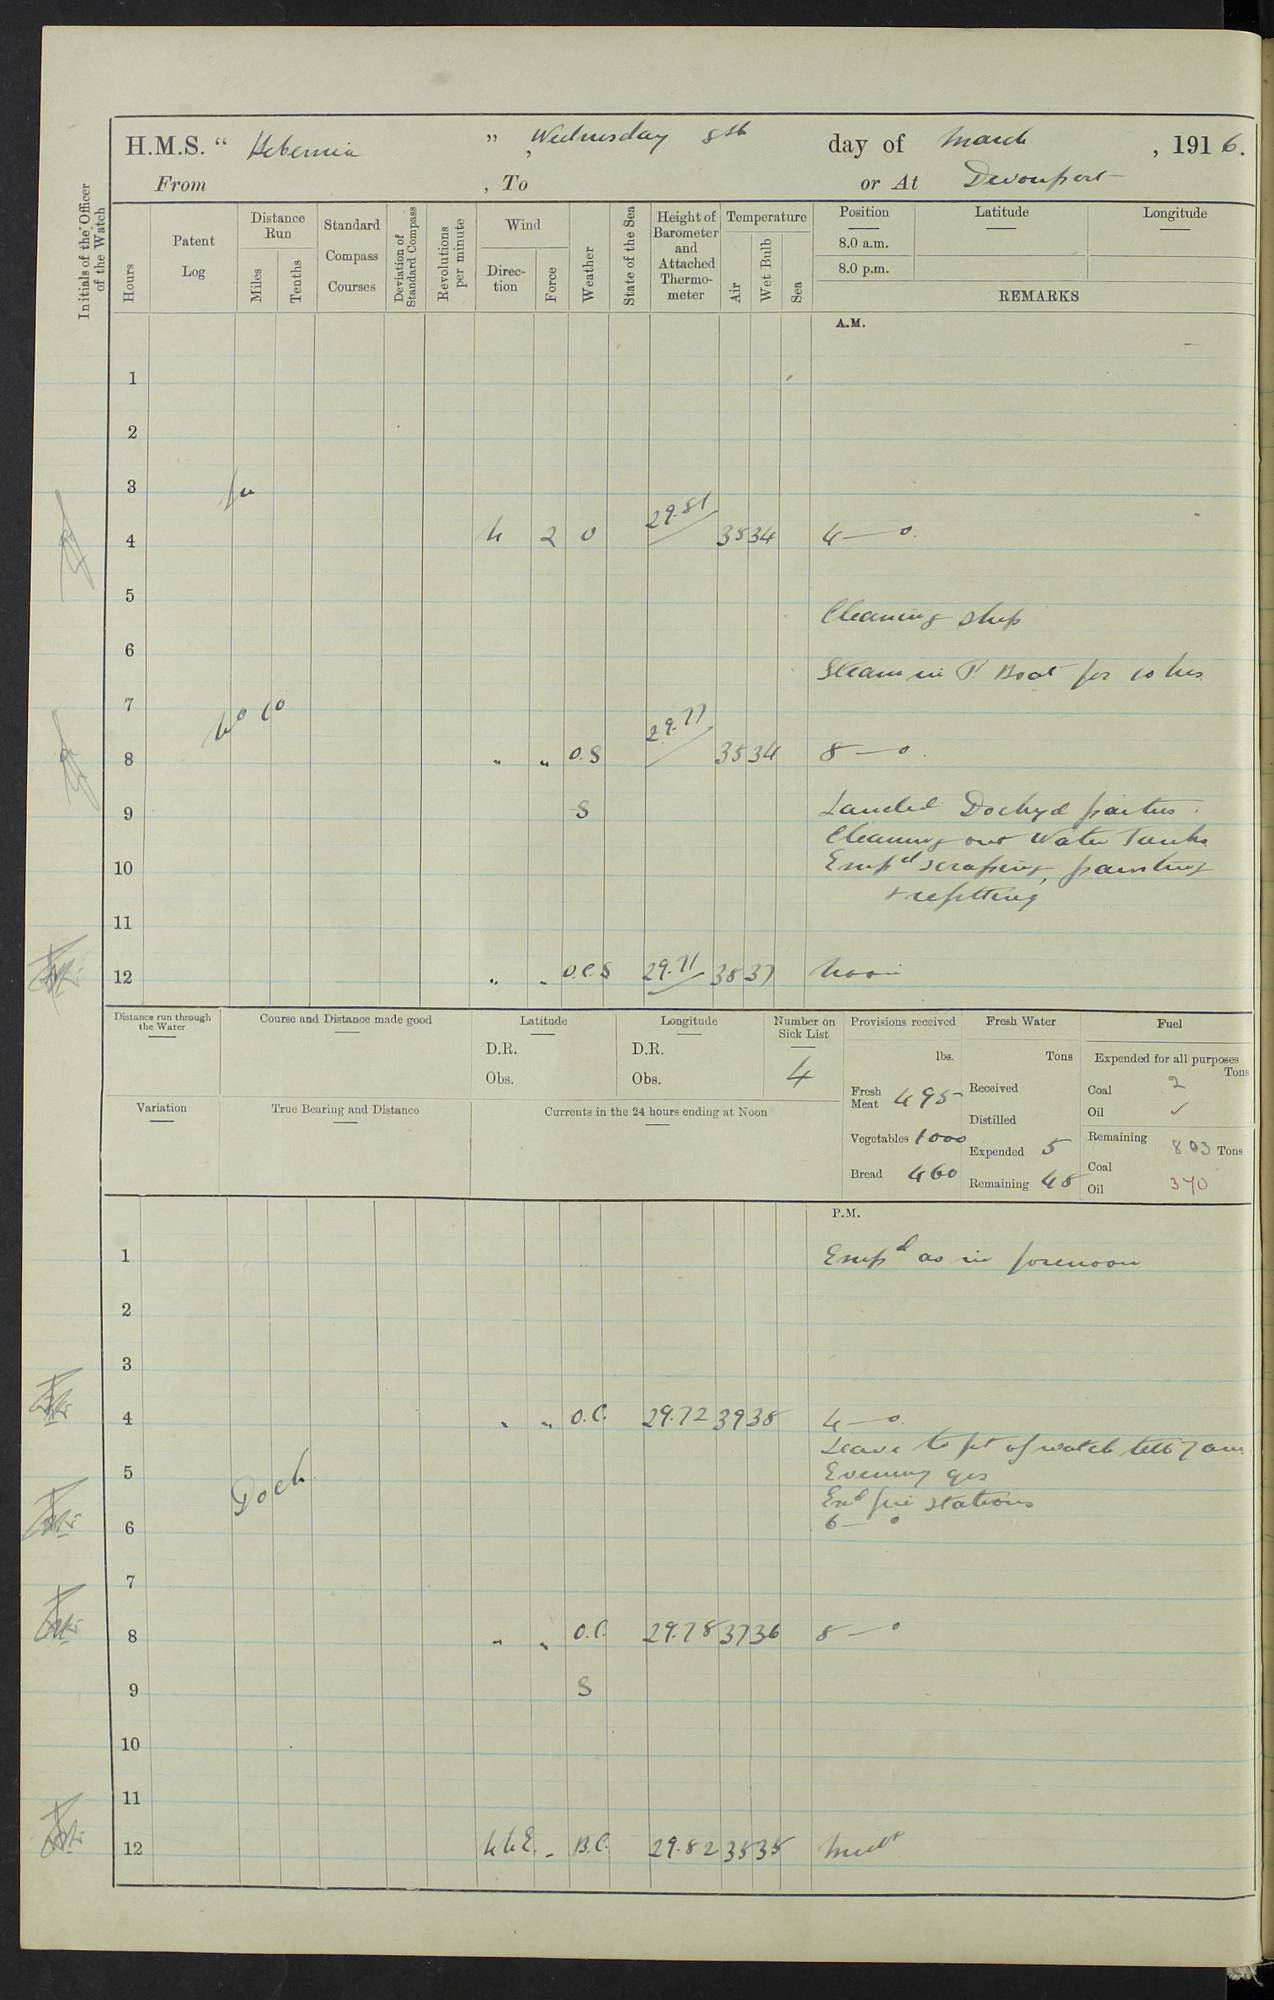 H.M.S. “ Hibernia ” , Wednesday 8th day of March , 1916.
From , To or At Devonport
Initials of the Officer of the Watch
Hours
Patent Log
Distance Run
Miles
Tenths
Standard Compass Courses
Deviation of Standard Compass
Revolutions per minute
Wind
Direction
Force
Weather
State of the Sea
Height of Barometer and Attached Thermometer
Temperature
Air
Wet Bulb
Sea
Position
Latitude
Longitude
8.0 a.m.
8.0 p.m.
REMARKS
A.M.
1
2
3
In
4 N 2 O 29.81 35 34 4 — 0.
5
Cleaning ship
6
Steam in P. Boat for 10 hrs
7
No 10
8 " " O.S 29.77 35 34 8 — 0.
9 S Landed Dockyd parties.
Cleaning out Water Tanks
10 Empd scraping, painting
& refitting
11
12 " " O.C.S 29.71 38 37 Noon
Distance run through the Water
Course and Distance made good
Latitude
D.R.
Obs.
Longitude
D.R.
Obs.
Number on Sick List
4
Provisions received
lbs.
Fresh Meat 495
Vegetables 1000
Bread 460
Fresh Water
Tons
Received
Distilled
Expended 5
Remaining 48
Fuel
Expended for all purposes
Tons
Coal 2
Oil ✓
Remaining 803 Tons
Coal
Oil 370
Variation
True Bearing and Distance
Currents in the 24 hours ending at Noon
P.M.
1 Empd as in forenoon
2
3
4 " " O.C. 29.72 39 38 4 — 0.
Leave to pt of watch till 7 am
5 Evening qrs
Dock
Exd fire stations
6 6 — 0
7
8 " " O.C. 29.78 37 36 8 — 0
9 S
10
11
12 N.N.E. - B.C. 29.82 35 35 Midt